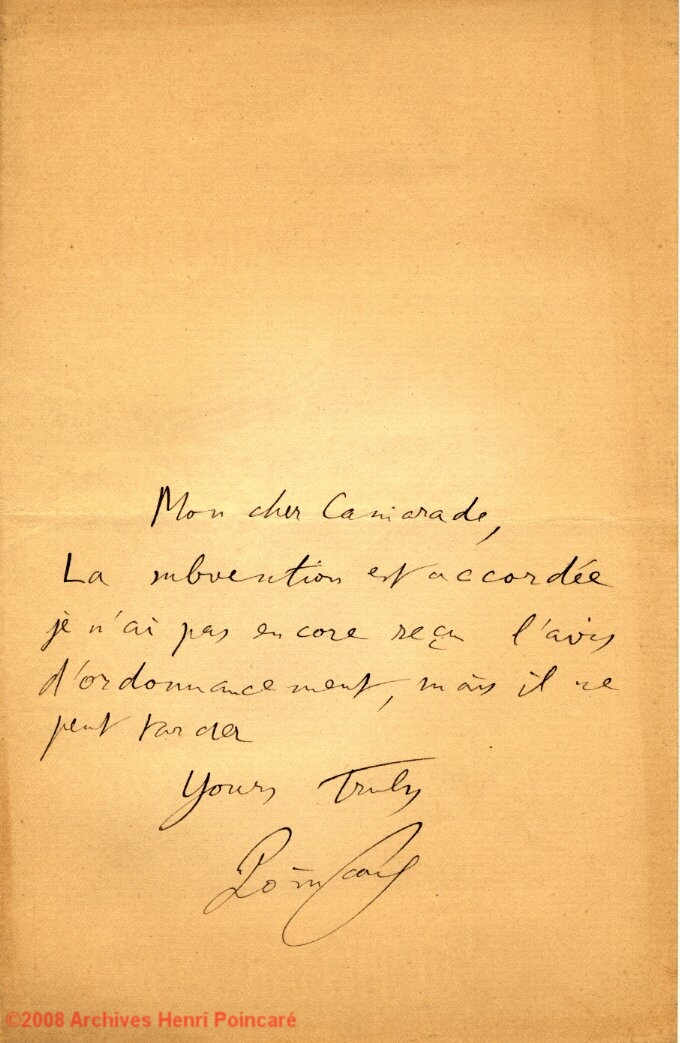 Mon cher Camarade,
La subvention est accordée
je n'ai pas encore reçu l'avis
d'ordonnancement, mais il ne
peut tarder
Yours Truly
Poincaré
©2008 Archives Henri Poincaré